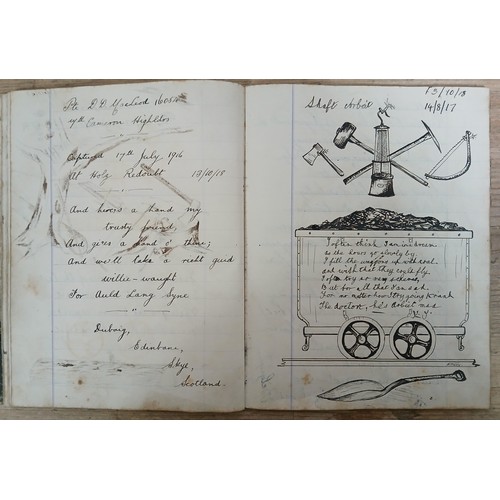 Pte D. D. MacLeod 16054
7th Cameron Highldrs
Captured 17th July 1916
At Holz Redoubt 13/10/18
And here's a hand my
trusty friend,
And gi'es a hand o' thine;
And we'll take a right guid
willie-waught
For Auld Lang Syne
Duboig,
Edenbane,
Skye,
Scotland.
13/10/18
Shaft Arbeit 14/8/17
I often think I am in a dream
as the hours go slowly by.
I fill the waggons up with coal.
and wish that they could fly.
I often try so very
But for all that I am sad.
For no matter how I try going to each
The doctor, he's Arbeit mad.